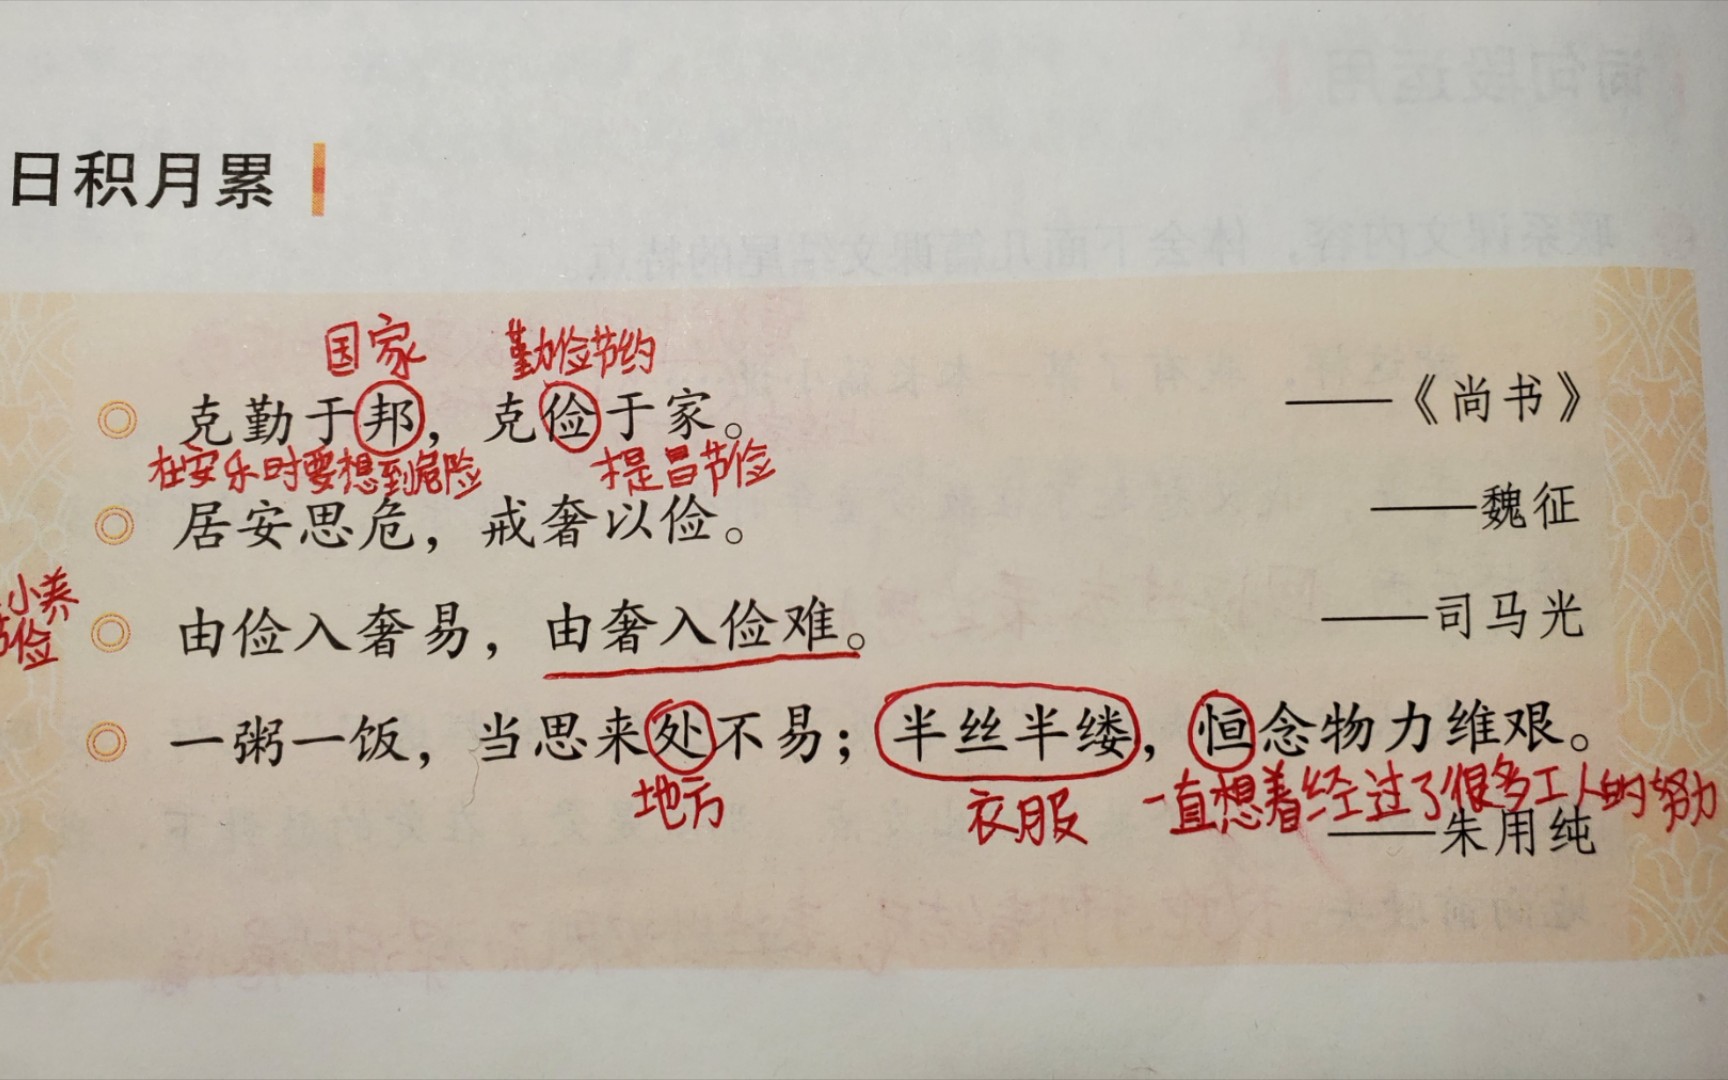 日积月累
国家 勤俭节约
克勤于邦，克俭于家。 ——《尚书》
在安乐时要想到危险 提昌节俭
居安思危，戒奢以俭。 ——魏征
小养
俭
由俭入奢易，由奢入俭难。 ——司马光
一粥一饭，当思来处不易；半丝半缕，恒念物力维艰。
地方 衣服 一直想着经过了很多工人的努力
——朱用纯